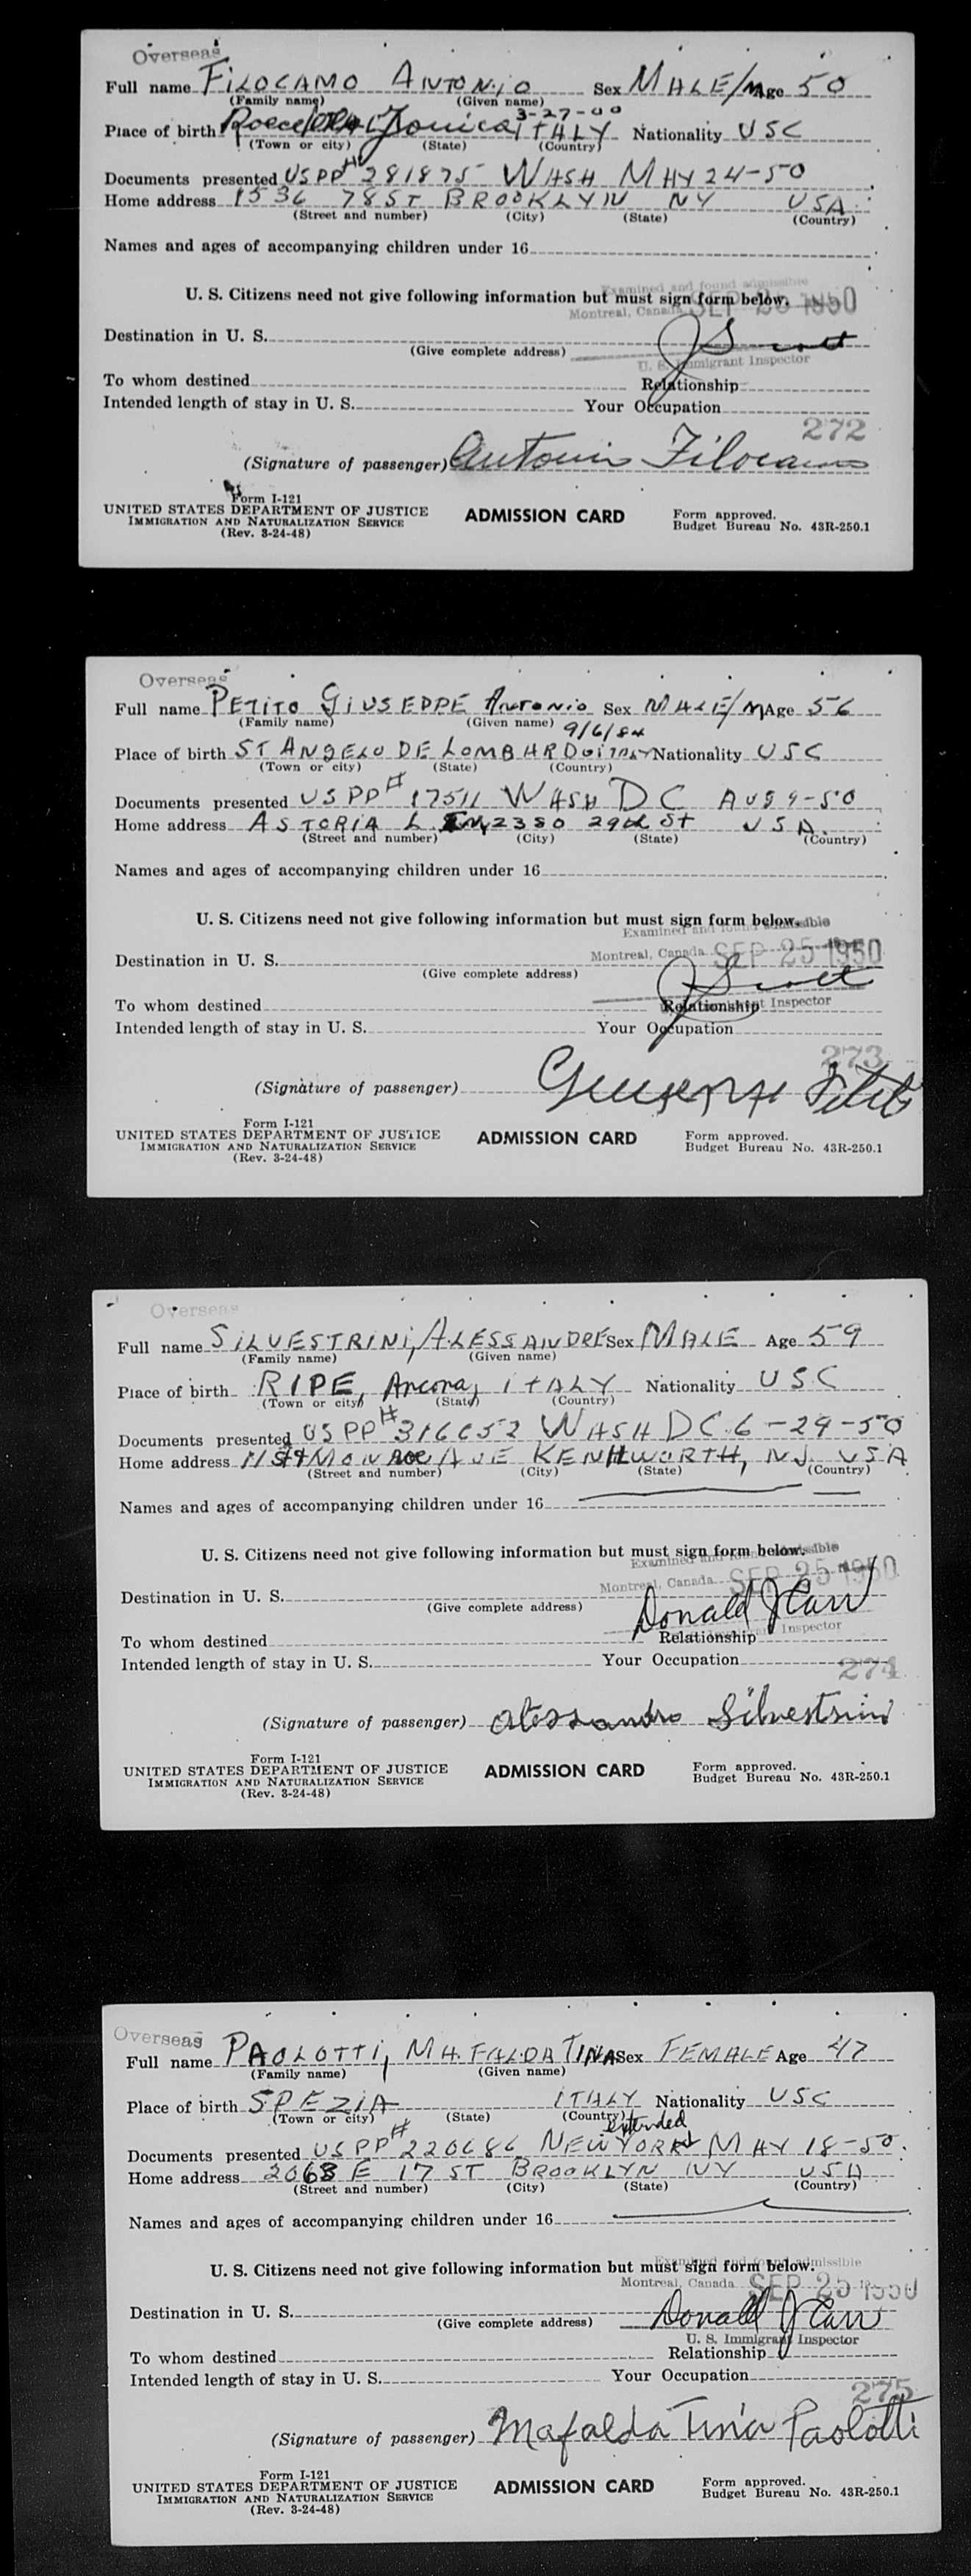 Overseas
Full name FILOCAMO ANTONIO Sex MALE/M Age 50
(Family name) (Given name)
3-27-00
Place of birth Roccella Jonica, ITALY Nationality USC
(Town or city) (State) (Country)
Documents presented US PP# 281875 WASH MAY 24-50
Home address 1536 78 ST BROOKLYN NY USA
(Street and number) (City) (State) (Country)
Names and ages of accompanying children under 16
U. S. Citizens need not give following information but must sign form below.
Examined and found admissible
Montreal, Canada SEP 25 1950
Destination in U. S.
(Give complete address)
J Scott
U. S. Immigrant Inspector
To whom destined Relationship
Intended length of stay in U. S. Your Occupation
272
(Signature of passenger) Antonio Filocamo
Form I-121
UNITED STATES DEPARTMENT OF JUSTICE ADMISSION CARD Form approved.
IMMIGRATION AND NATURALIZATION SERVICE Budget Bureau No. 43R-250.1
(Rev. 3-24-48)
Overseas
Full name PETITO GIUSEPPE Antonio Sex MALE/M Age 56
(Family name) (Given name)
9/6/84
Place of birth ST ANGELO DE LOMBARDO ITALY Nationality USC
(Town or city) (State) (Country)
Documents presented US PP# 17511 WASH DC AUG 9-50
Home address ASTORIA L 2380 29th St USA
(Street and number) (City) (State) (Country)
Names and ages of accompanying children under 16
U. S. Citizens need not give following information but must sign form below.
Examined and found admissible
Montreal, Canada SEP 25 1950
Destination in U. S.
(Give complete address)
J Scott
Immigrant Inspector
To whom destined Relationship
Intended length of stay in U. S. Your Occupation
273
(Signature of passenger) Giuseppe Petito
Form I-121
UNITED STATES DEPARTMENT OF JUSTICE ADMISSION CARD Form approved.
IMMIGRATION AND NATURALIZATION SERVICE Budget Bureau No. 43R-250.1
(Rev. 3-24-48)
Overseas
Full name SILVESTRINI, ALESSANDRE Sex MALE Age 59
(Family name) (Given name)
Place of birth RIPE, Ancona, ITALY Nationality USC
(Town or city) (State) (Country)
Documents presented US PP# 316652 WASH DC 6-29-50
Home address MONROE AVE KENILWORTH, NJ USA
(Street and number) (City) (State) (Country)
Names and ages of accompanying children under 16
U. S. Citizens need not give following information but must sign form below.
Examined and found admissible
Montreal, Canada SEP 25 1950
Destination in U. S.
(Give complete address)
Donald J Carr
Inspector
To whom destined Relationship
Intended length of stay in U. S. Your Occupation
274
(Signature of passenger) Alessandro Silvestrini
Form I-121
UNITED STATES DEPARTMENT OF JUSTICE ADMISSION CARD Form approved.
IMMIGRATION AND NATURALIZATION SERVICE Budget Bureau No. 43R-250.1
(Rev. 3-24-48)
Overseas
Full name PAOLOTTI, MAFALDA TINA Sex FEMALE Age 47
(Family name) (Given name)
Place of birth SPEZIA ITALY Nationality USC
(Town or city) (State) (Country)
extended
Documents presented US PP# 220686 NEW YORK MAY 18-50.
Home address 2068 E 17 ST BROOKLYN NY USA
(Street and number) (City) (State) (Country)
Names and ages of accompanying children under 16
U. S. Citizens need not give following information but must sign form below.
Examined and found admissible
Montreal, Canada SEP 25 1950
Destination in U. S.
(Give complete address)
Donald J Carr
U. S. Immigrant Inspector
To whom destined Relationship
Intended length of stay in U. S. Your Occupation
275
(Signature of passenger) Mafalda Tina Paolotti
Form I-121
UNITED STATES DEPARTMENT OF JUSTICE ADMISSION CARD Form approved.
IMMIGRATION AND NATURALIZATION SERVICE Budget Bureau No. 43R-250.1
(Rev. 3-24-48)